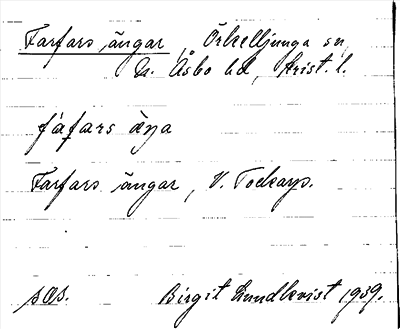 Farfars ängar, Örkelljunga sn,
N. Åsbo hd, Krist. l.
fàfars ä̀ŋa
Farfars ängar, V. Tockarp.
sös.
Birgit Lundkvist 1939.